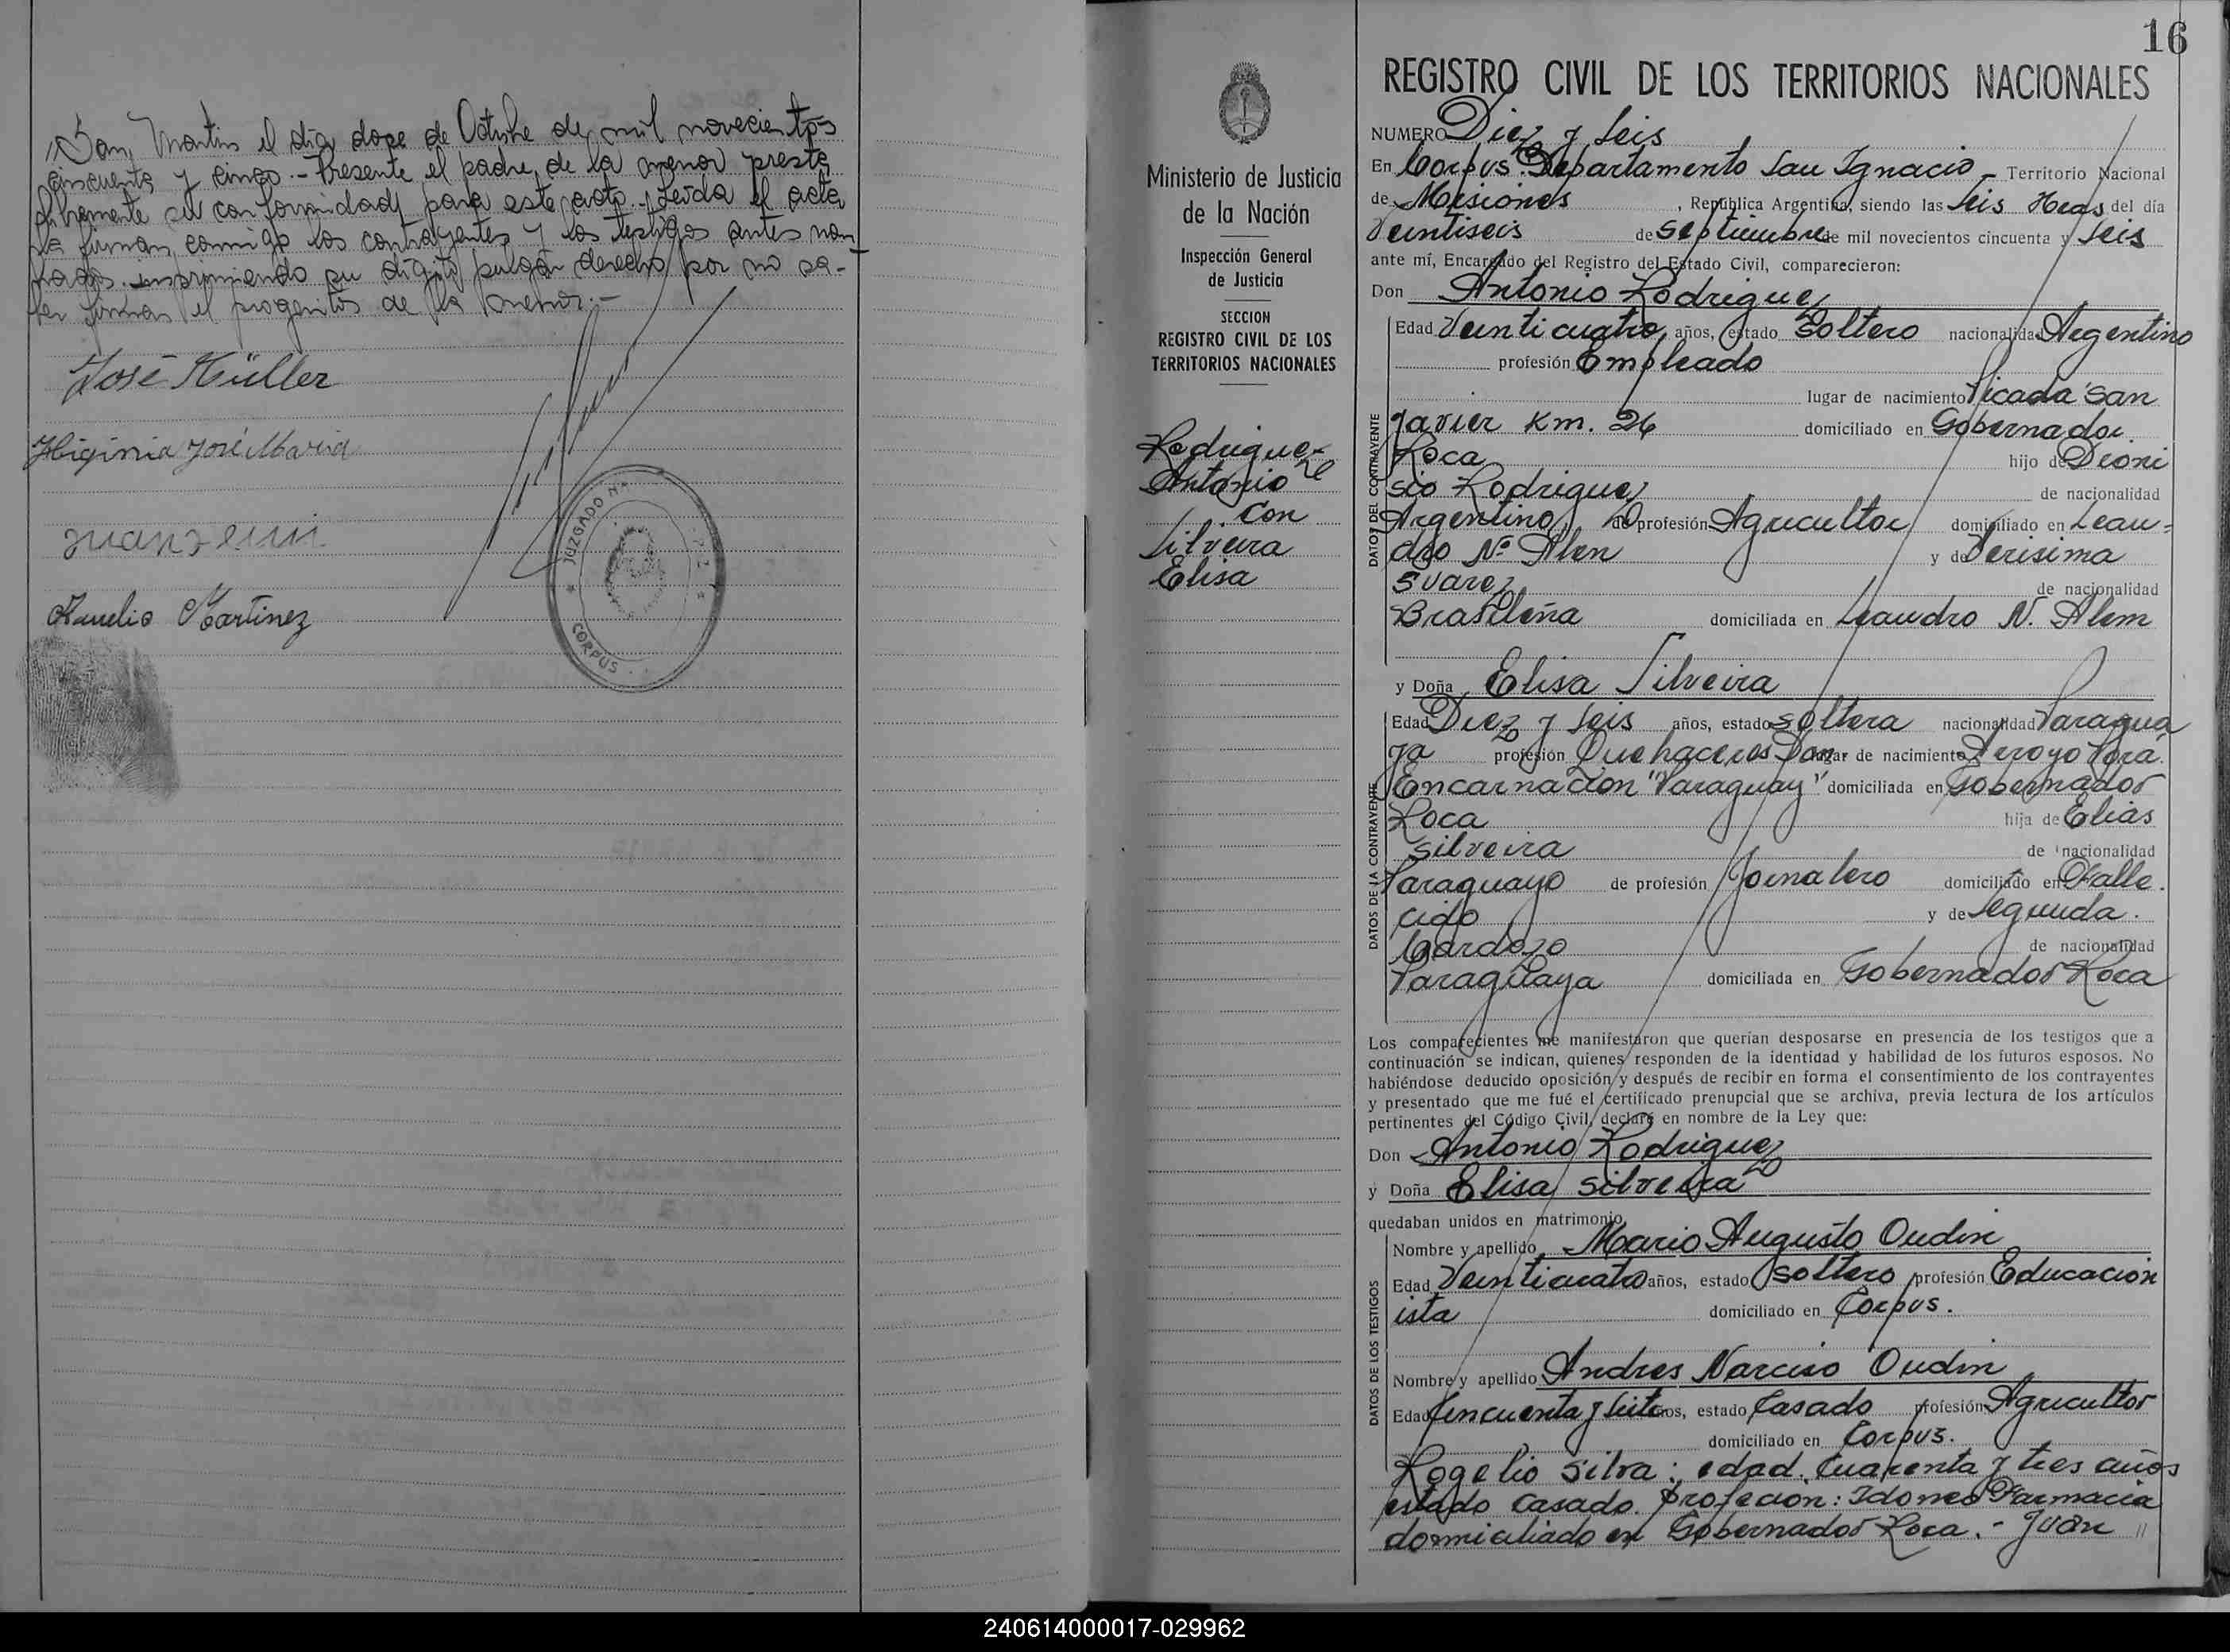 "San Martin el dia doce de Octubre de mil novecientos
cincuenta y cinco.- Presente el padre de la menor presta
libremente su conformidad para este acto.- Leida el acta
la firman conmigo los contrayentes y los testigos antes nom
brados imprimiendo su digito pulgar derecho por no sa-
ber firmar el progenitor de la menor.-
José Müller
Higinia José Maria
Aurelio Martinez
JUZGADO
PAZ
CORPUS
16
REGISTRO CIVIL DE LOS TERRITORIOS NACIONALES
Ministerio de Justicia
de la Nación
Inspección General
de Justicia
SECCION
REGISTRO CIVIL DE LOS
TERRITORIOS NACIONALES
Rodriguez
Antonio
con
Silveira
Elisa
NUMERO Diez y Seis
En Corpus Departamento San Ignacio - Territorio Nacional
de Misiones, República Argentina, siendo las Seis Horas del día
Veintiseis de Septiembre de mil novecientos cincuenta y Seis
ante mí, Encargado del Registro del Estado Civil, comparecieron:
Don Antonio Rodriguez
DATO DEL CONTRAYENTE
Edad Veinticuatro años, estado Soltero nacionalidad Argentino
profesión Empleado
lugar de nacimiento Picada San
Javier Km. 26 domiciliado en Gobernador
Roca hijo de Dioni
sio Rodriguez de nacionalidad
Argentino de profesión Agricultor domiciliado en Lean=
dro Nº Alen y de Verisima
Suarez de nacionalidad
Brasileña domiciliada en Leandro N. Alem
y Doña Elisa Silveira
DATOS DE LA CONTRAYENTE
Edad Diez y Seis años, estado soltera nacionalidad Paragua
ya profesión Quehaceres Dom. lugar de nacimiento Arroyo Porá.
Encarnacion "Paraguay" domiciliada en Gobernador
Roca hija de Elias
Silveira de nacionalidad
Paraguayo de profesión Jornalero domiciliado en Falle.
cido y de Segunda.
Cardozo de nacionalidad
Paraguaya domiciliada en Gobernador Roca
Los comparecientes me manifestaron que querían desposarse en presencia de los testigos que a
continuación se indican, quienes responden de la identidad y habilidad de los futuros esposos. No
habiéndose deducido oposición y después de recibir en forma el consentimiento de los contrayentes
y presentado que me fué el certificado prenupcial que se archiva, previa lectura de los artículos
pertinentes del Código Civil, declaré en nombre de la Ley que:
Don Antonio Rodriguez
y Doña Elisa Silveira
quedaban unidos en matrimonio
DATOS DE LOS TESTIGOS
Nombre y apellido Mario Augusto Oudin
Edad Veinticuatro años, estado soltero profesión Educacion
ista domiciliado en Corpus.
Nombre y apellido Andres Narciso Oudin
Edad Cincuenta y siete años, estado Casado profesión Agricultor
domiciliado en Corpus.
Rogelio Silva: edad. Cuarenta y tres años
estado casado. profecion: Idoneo Farmacia
domiciliado en Gobernador Roca. - Juan "
240614000017-029962